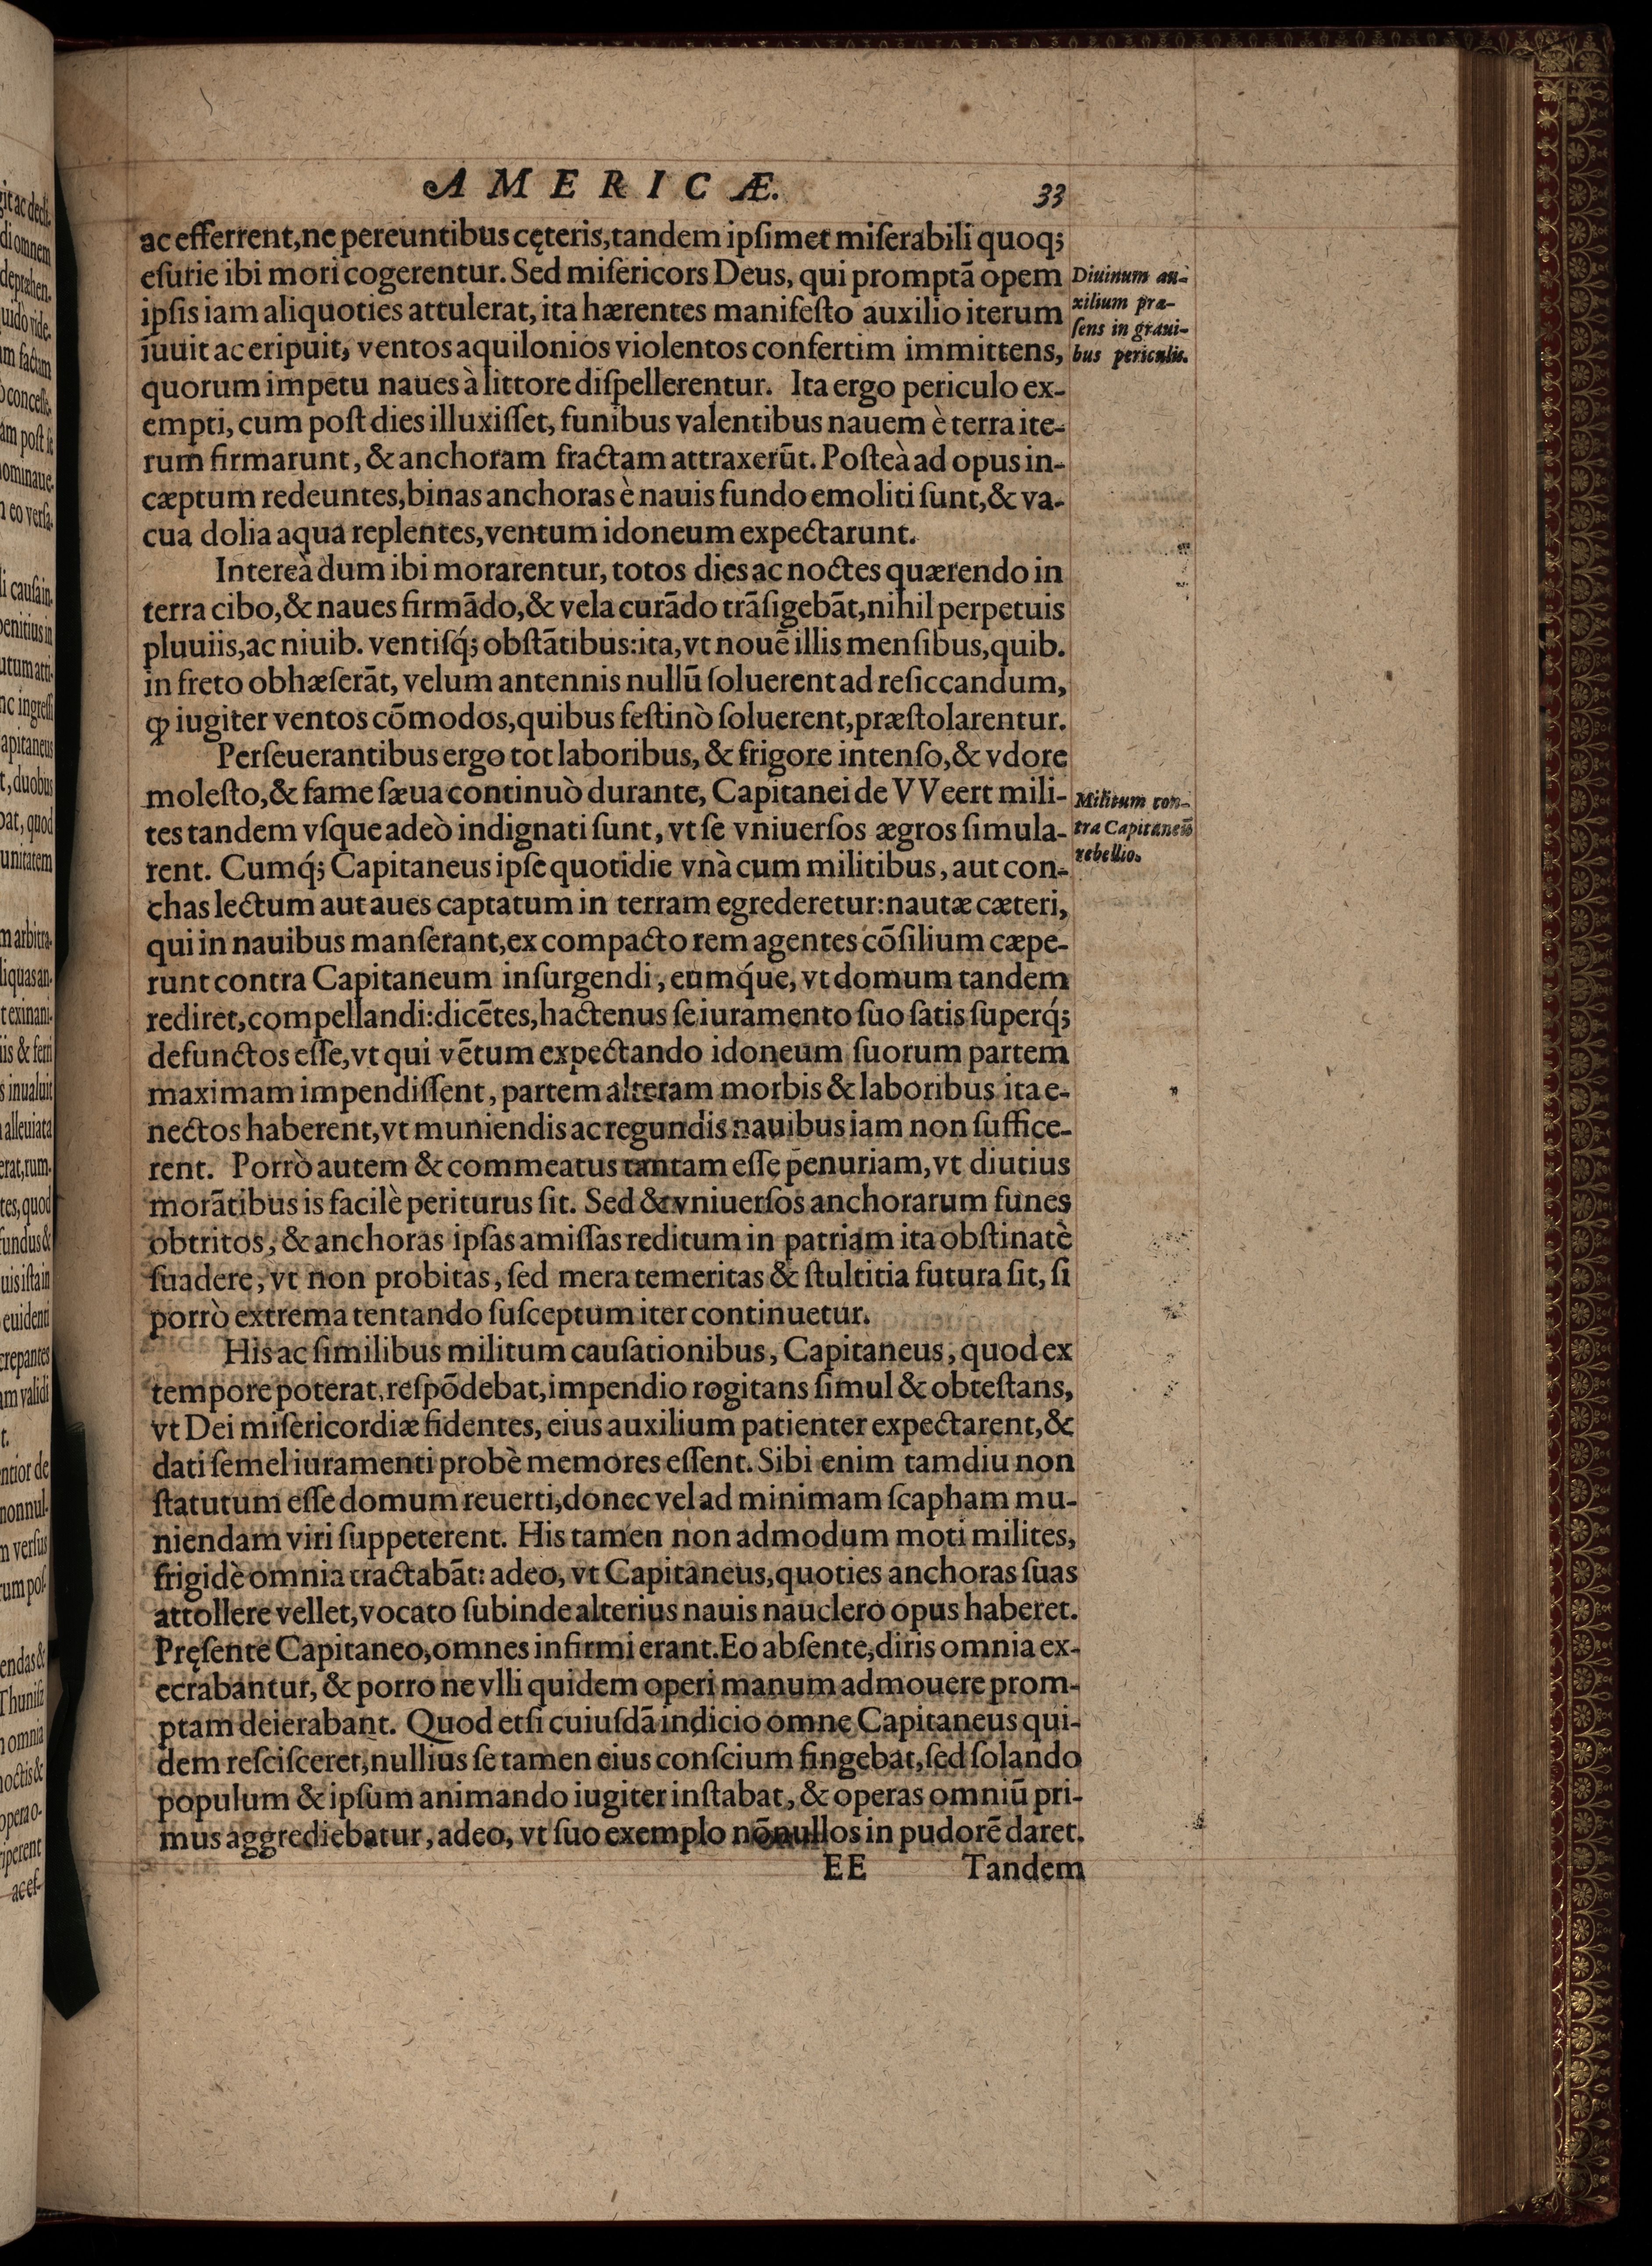 AMERICÆ.
33
ac efferrent, ne pereuntibus cęteris, tandem ipſimet miſerabili quoq;
eſurie ibi mori cogerentur. Sed miſericors Deus, qui promptã opem
ipſis iam aliquoties attulerat, ita hærentes manifeſto auxilio iterum
iuuit ac eripuit, ventos aquilonios violentos confertim immittens,
quorum impetu naues à littore diſpellerentur. Ita ergo periculo ex-
empti, cum poſt dies illuxiſſet, funibus valentibus nauem è terra ite-
rum firmarunt, & anchoram fractam attraxerũt. Poſteà ad opus in-
cæptum redeuntes, binas anchoras è nauis fundo emoliti ſunt, & va-
cua dolia aqua replentes, ventum idoneum expectarunt.
Diuinum au-
xilium præ-
ſens in graui-
bus periculis.
Intereà dum ibi morarentur, totos dies ac noctes quærendo in
terra cibo, & naues firmãdo, & vela curãdo trãſigebãt, nihil perpetuis
pluuiis, ac niuib. ventiſq́; obſtãtibus: ita, vt nouẽ illis menſibus, quib.
in freto obhæſerãt, velum antennis nullũ ſoluerent ad reſiccandum,
ꝙ iugiter ventos cõmodos, quibus feſtinò ſoluerent, præſtolarentur.
Perſeuerantibus ergo tot laboribus, & frigore intenſo, & vdore
moleſto, & fame ſæua continuò durante, Capitanei de VVeert mili-
tes tandem vſque adeò indignati ſunt, vt ſe vniuerſos ægros ſimula-
rent. Cumq́; Capitaneus ipſe quotidie vnà cum militibus, aut con-
chas lectum aut aues captatum in terram egrederetur: nautæ cæteri,
qui in nauibus manſerant, ex compacto rem agentes cõſilium cæpe-
runt contra Capitaneum inſurgendi, eumq́ue, vt domum tandem
rediret, compellandi: dicẽtes, hactenus ſe iuramento ſuo ſatis ſuperq́;
defunctos eſſe, vt qui vẽtum expectando idoneum ſuorum partem
maximam impendiſſent, partem alteram morbis & laboribus ita e-
nectos haberent, vt muniendis ac regundis nauibus iam non ſuffice-
rent. Porrò autem & commeatus tantam eſſe penuriam, vt diutius
morãtibus is facilè periturus ſit. Sed & vniuerſos anchorarum funes
obtritos, & anchoras ipſas amiſſas reditum in patriam ita obſtinatè
ſuadere, vt non probitas, ſed mera temeritas & ſtultitia futura ſit, ſi
porrò extrema tentando ſuſceptum iter continuetur.
Militum con-
tra Capitaneũ
rebellio.
His ac ſimilibus militum cauſationibus, Capitaneus, quod ex
tempore poterat, reſpõdebat, impendio rogitans ſimul & obteſtans,
vt Dei miſericordiæ fidentes, eius auxilium patienter expectarent, &
dati ſemel iuramenti probè memores eſſent. Sibi enim tamdiu non
ſtatutum eſſe domum reuerti, donec vel ad minimam ſcapham mu-
niendam viri ſuppeterent. His tamen non admodum moti milites,
frigidè omnia tractabãt: adeo, vt Capitaneus, quoties anchoras ſuas
attollere vellet, vocato ſubinde alterius nauis nauclero opus haberet.
Pręſente Capitaneo, omnes infirmi erant. Eo abſente, diris omnia ex-
ecrabantur, & porro ne vlli quidem operi manum admouere prom-
ptam deierabant. Quod etſi cuiuſdã indicio omne Capitaneus qui-
dem reſciſceret, nullius ſe tamen eius conſcium fingebat, ſed ſolando
populum & ipſum animando iugiter inſtabat, & operas omniũ pri-
mus aggrediebatur, adeo, vt ſuo exemplo nõnullos in pudorẽ daret.
EE Tandem